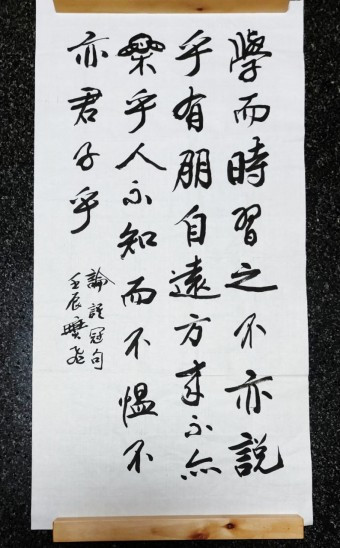 學而時習之不亦說
乎有朋自遠方来不亦
樂乎人不知而不愠不
亦君子乎
論語冠句
壬辰